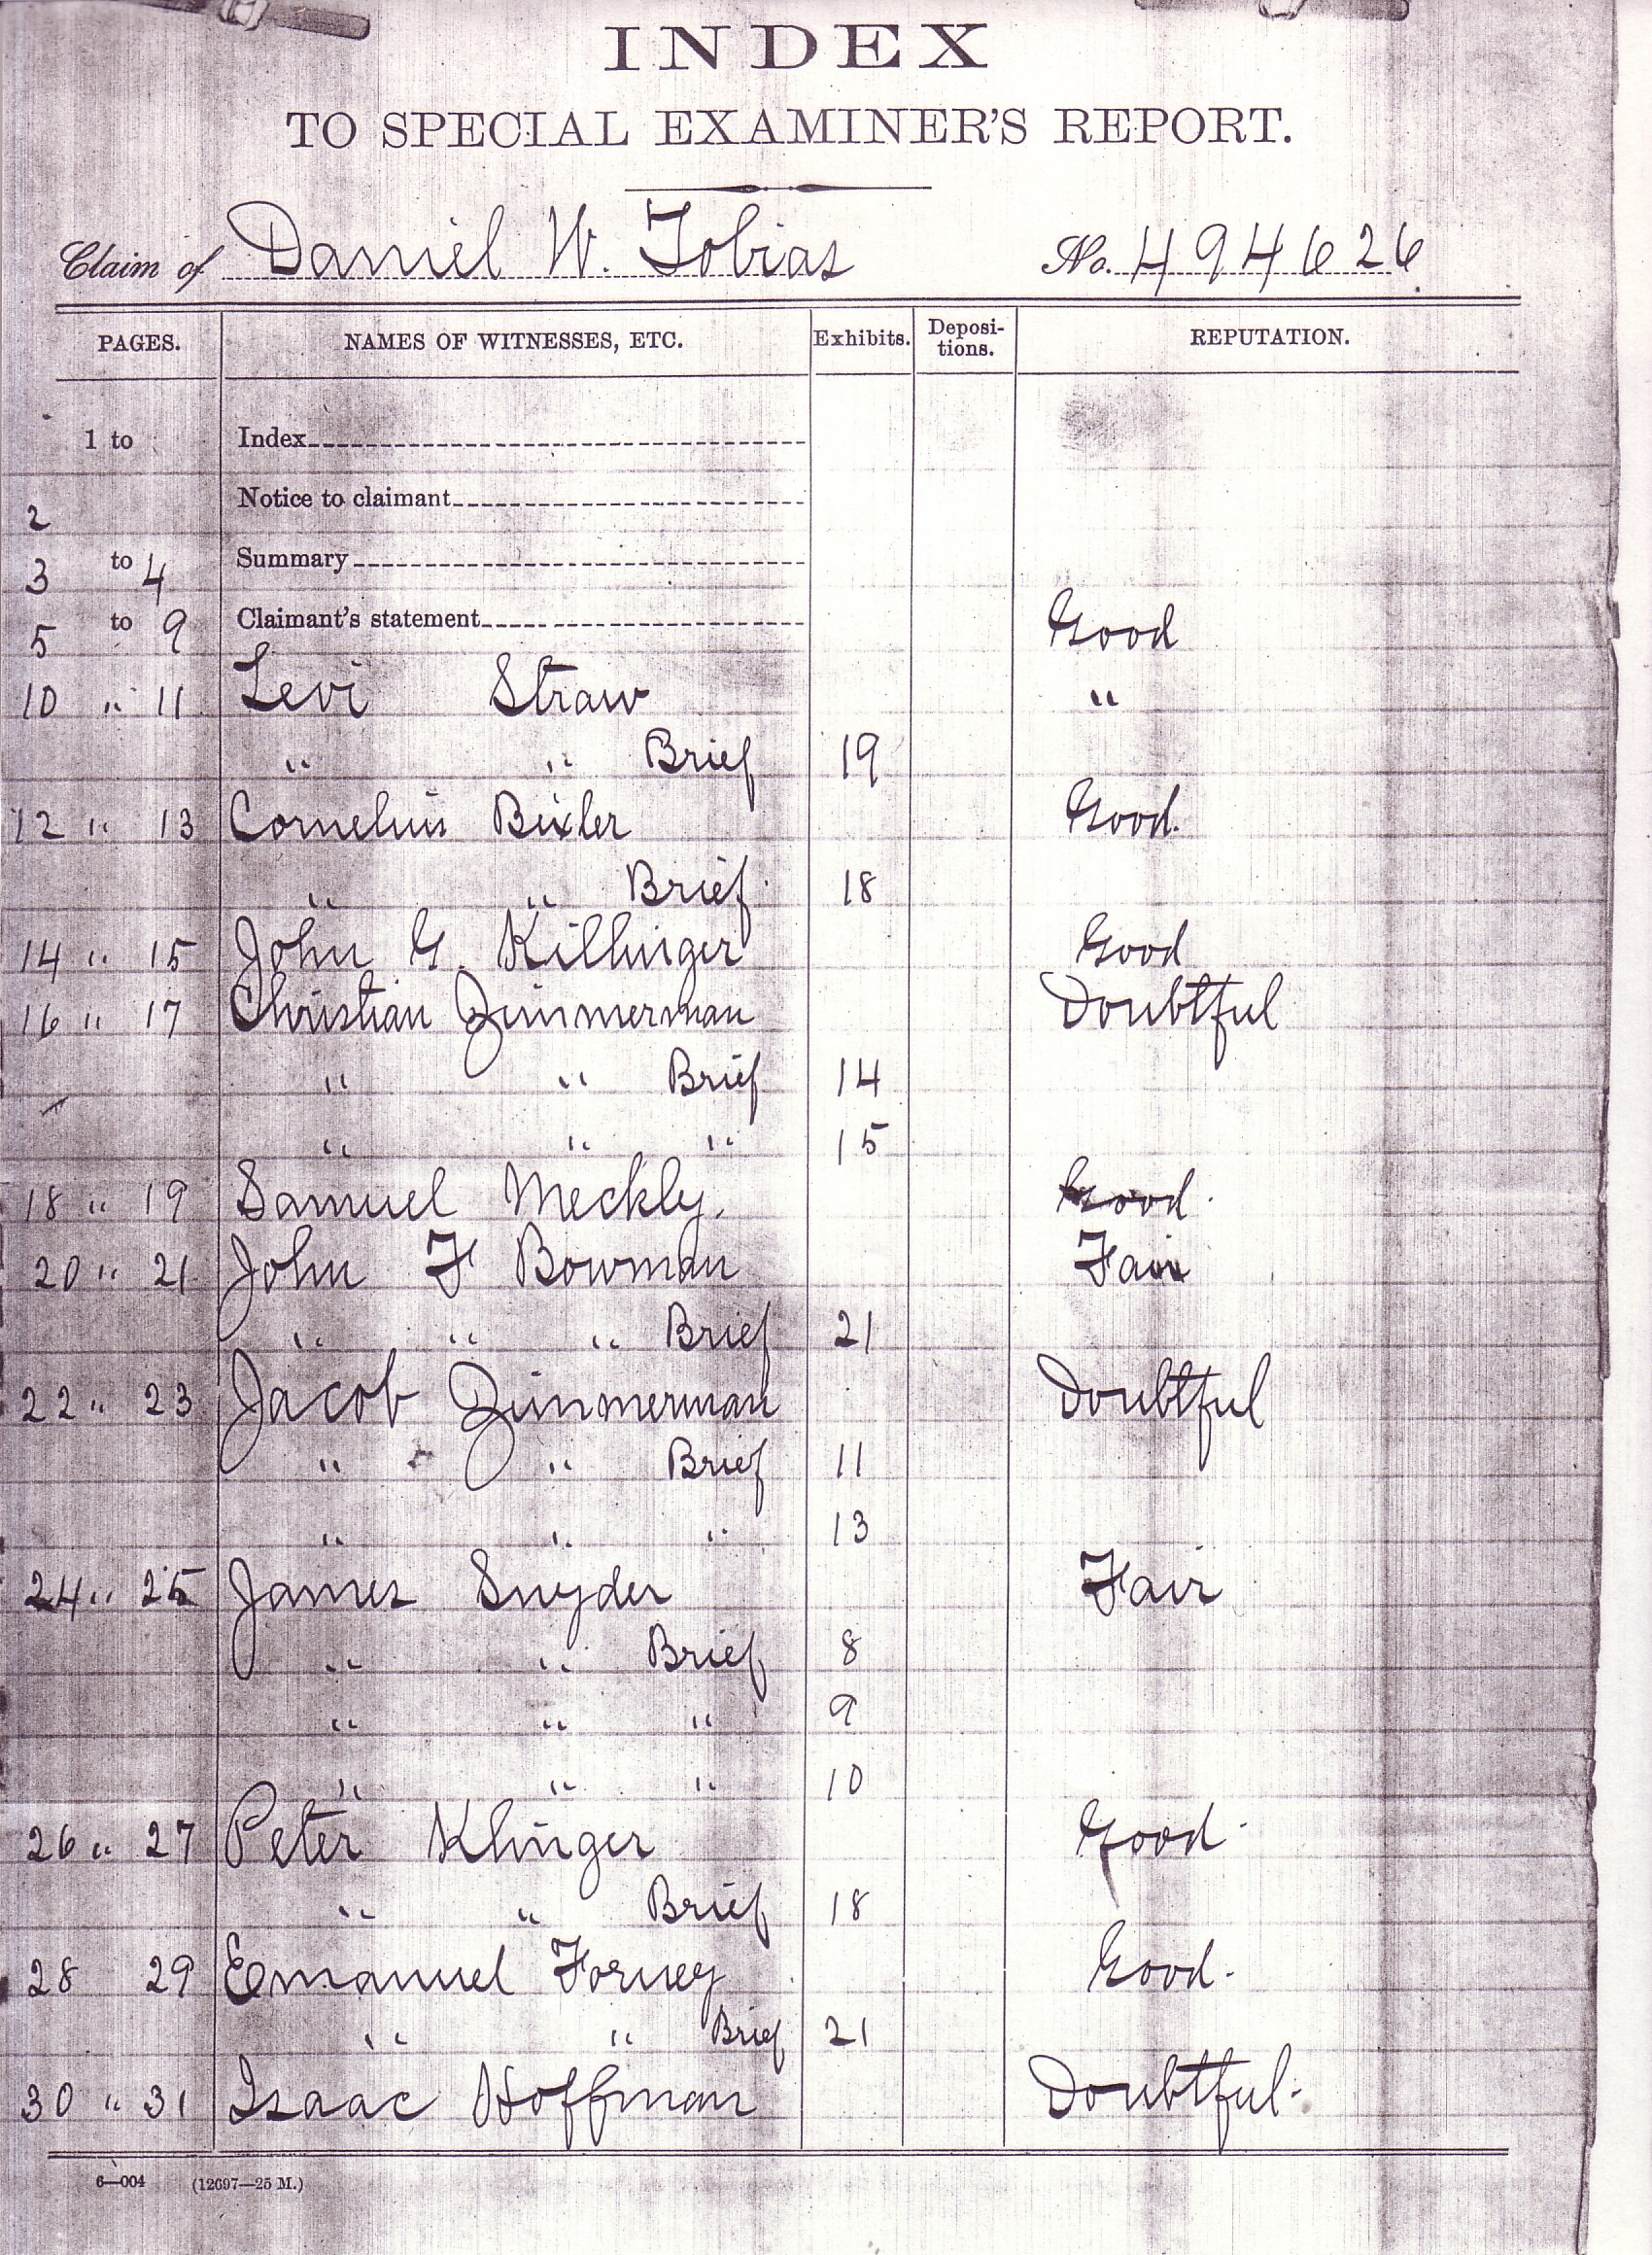 INDEX
TO SPECIAL EXAMINER'S REPORT.
Claim of Daniel W. Tobias No. 494626
PAGES. NAMES OF WITNESSES, ETC. Exhibits. Deposi-tions. REPUTATION.
1 to Index
2 Notice to claimant
3 to 4 Summary
5 to 9 Claimant's statement Good
10 " 11 Levi Straw "
" " Brief 19
12 " 13 Cornelius Bixler Good.
" " Brief 18
14 " 15 John G. Killinger Good
16 " 17 Christian Zimmerman Doubtful
" " Brief 14
" " " 15
18 " 19 Samuel Meckly. Good.
20 " 21 John F Bowman Fair
" " " Brief 21
22 " 23 Jacob Zimmerman Doubtful
" " Brief 11
" " " 13
24 " 25 James Snyder Fair
" " Brief 8
" " " 9
" " " 10
26 " 27 Peter Klinger Good.
" " Brief 18
28 29 Emanuel Forney Good.
" " Brief 21
30 " 31 Isaac Hoffman Doubtful.
6—004 (12697—25 M.)